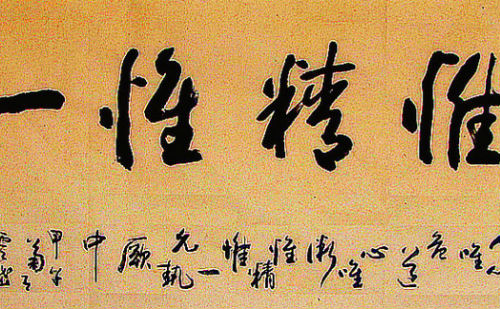 惟精惟一
唯危道心唯微惟精惟一允執厥中
甲午